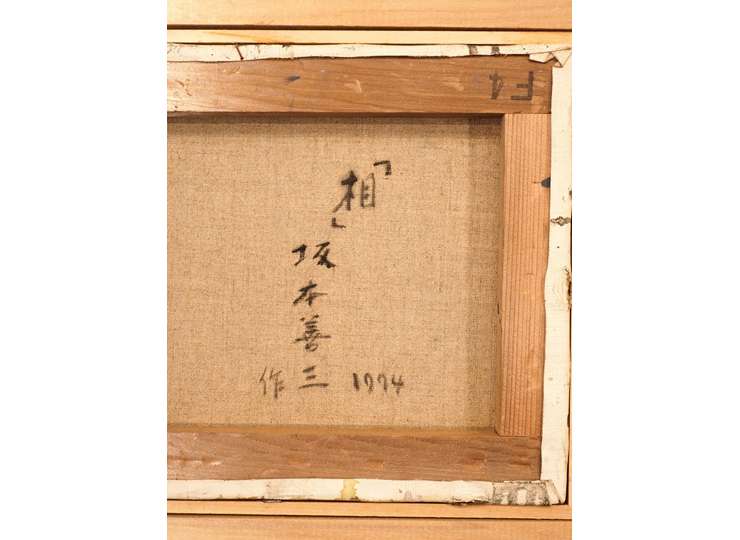 「相」
坂本善三
作
1974
F4